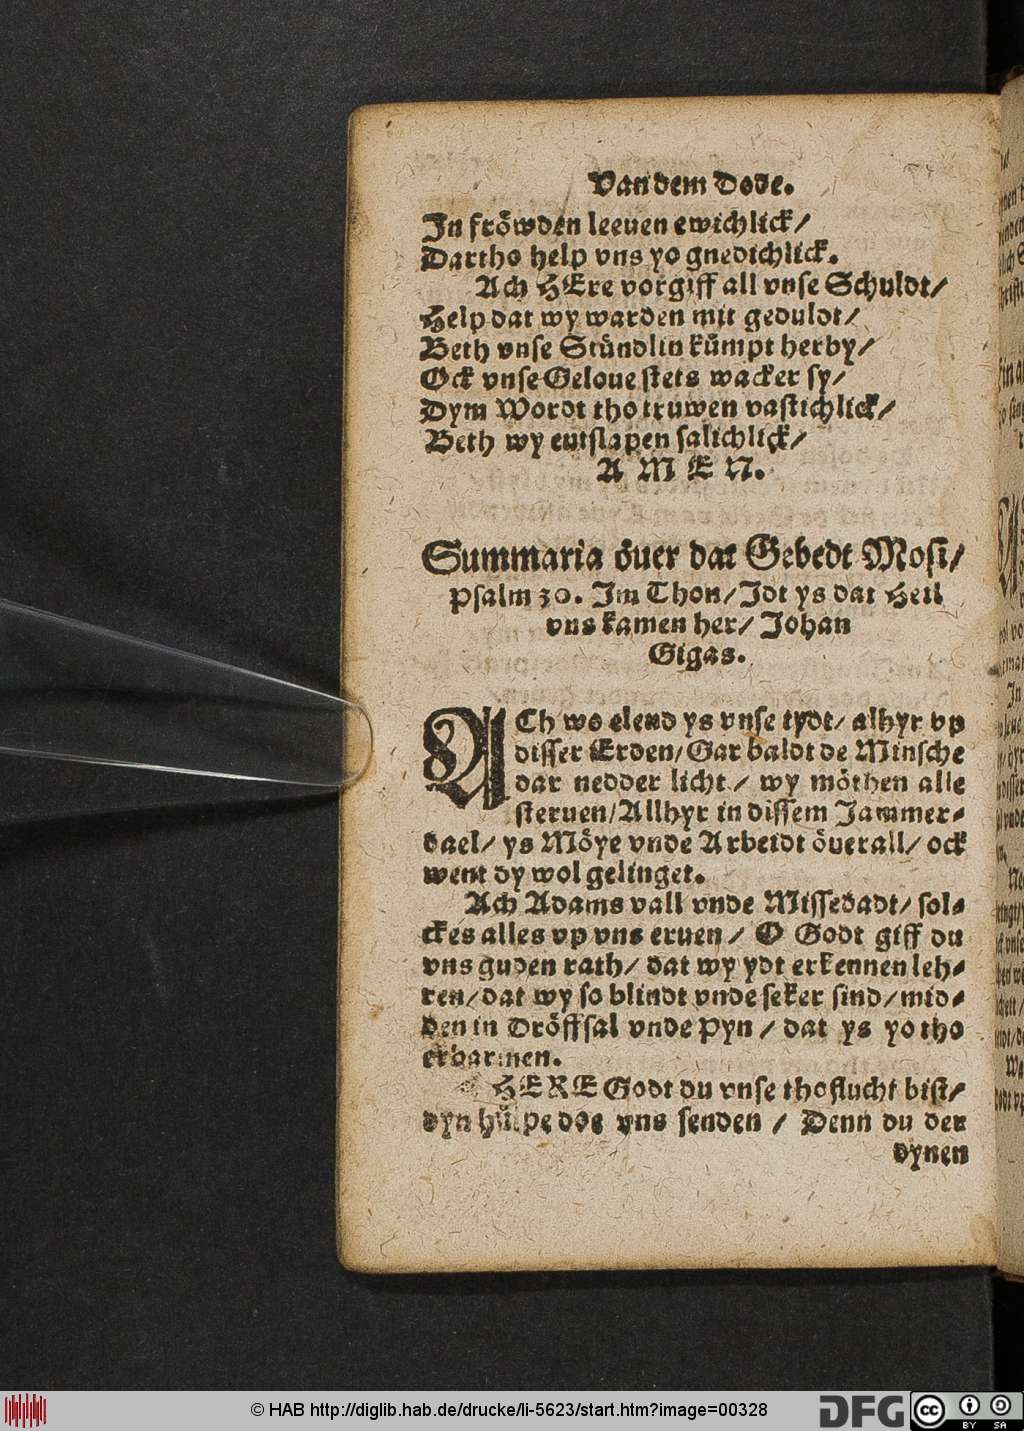 Van dem Dode.
In frőwden leeuen ewichlick/
Dartho help vns yo gnedichlick.
Ach HEre vorgiff all vnse Schuldt/
Help dat wy warden mit geduldt/
Beth vnse Stündlin kümpt herby/
Ock vnse Geloue stets wacker sy/
Dym Wordt tho truwen vastichlick/
Beth wy entslapen salichlick/
A M E N.
Summaria őuer dat Gebedt Mosi/
Psalm 30. Im Thon/ Idt ys dat Heil
vns kamen her/ Johan
Gigas.
ACh wo elend ys vnse tydt/ alhyr vp
disser Erden/ Gar baldt de Minsche
dar nedder licht/ wy mőthen alle
steruen/ Allhyr in dissem Jammer-
dael/ ys Mőye vnde Arbeidt őuerall/ ock
went dy wol gelinget.
Ach Adams vall vnde Missedadt/ sol-
ckes alles vp vns eruen / O Godt giff du
vns guden rath/ dat wy ydt erkennen leh-
ren/ dat wy so blindt vnde seker sind/ mid-
den in Drőffsal vnde Pyn / dat ys yo tho
erbarmen.
HERE Godt du vnse thoflucht bist/
dyn hülpe doe vns senden / Denn du der
dynen
© HAB http://diglib.hab.de/drucke/li-5623/start.htm?image=00328
DFG
cc
BY SA